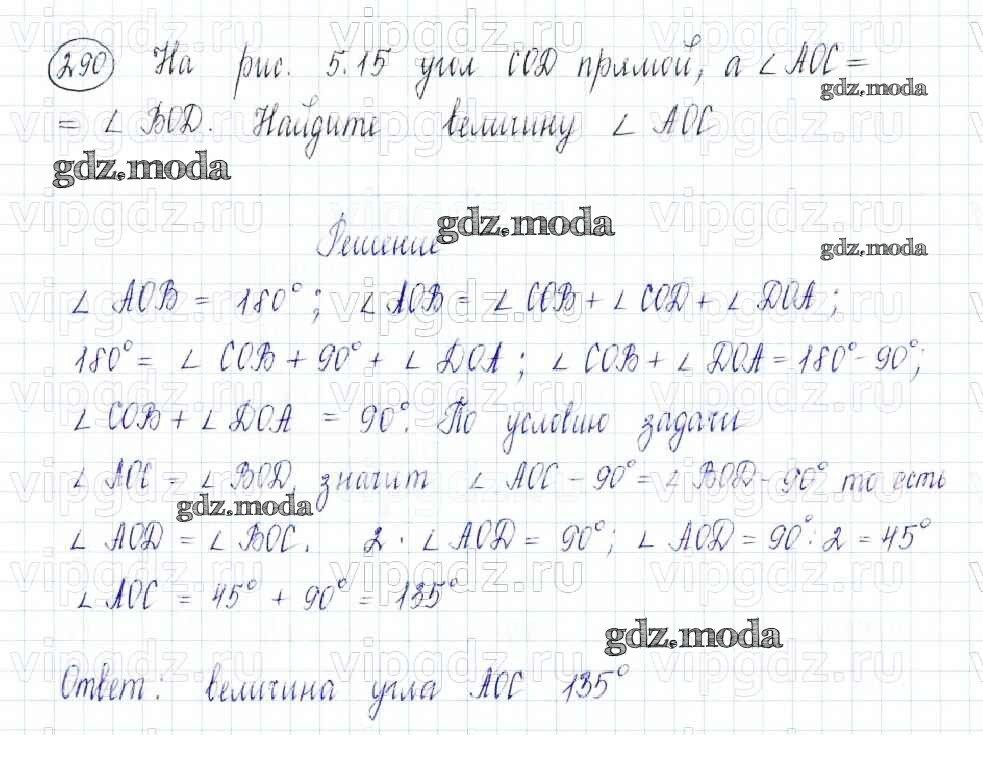 290 На рис. 5.15 угол COD прямой, а ∠ AOC =
gdz.moda
= ∠ BOD. Найдите величину ∠ AOC
gdz.moda
Решение
gdz.moda
gdz.moda
∠ AOB = 180°; ∠ AOB = ∠ COB + ∠ COD + ∠ DOA;
180° = ∠ COB + 90° + ∠ DOA; ∠ COB + ∠ DOA = 180° - 90°;
∠ COB + ∠ DOA = 90°. По условию задачи
∠ AOC = ∠ BOD, значит ∠ AOC - 90° = ∠ BOD - 90° то есть
gdz.moda
∠ AOD = ∠ BOC. 2 · ∠ AOD = 90°; ∠ AOD = 90° : 2 = 45°
∠ AOC = 45° + 90° = 135°
gdz.moda
Ответ: величина угла AOC 135°
vipgdz.ru